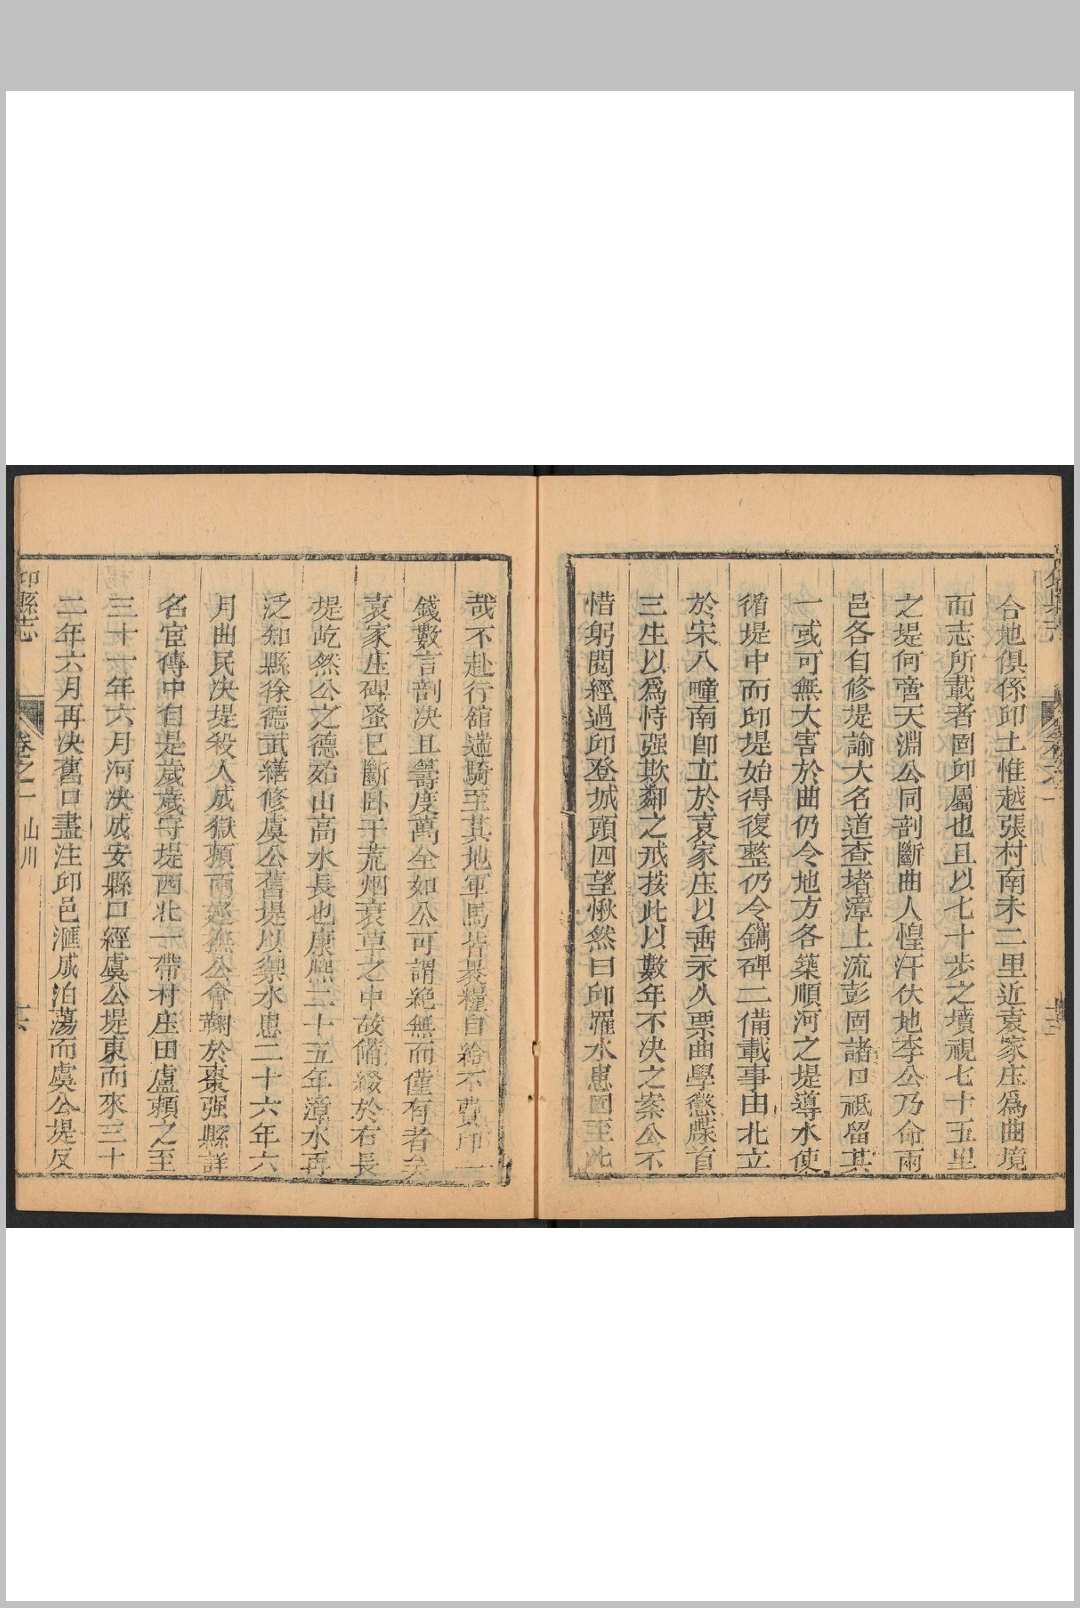 合地俱係邱土惟越張村南未二里近袁家庄爲曲境
而志所載者固邱屬也且以七十步之墳視七十五里
之堤何啻天淵公同剖斷曲人惶汗伏地李公乃命兩
邑各自修堤諭大名道查堵漳上流彭固諸口祗留其
一或可無大害於曲仍令地方各築順河之堤導水使
循堤中而邱堤始得復整仍令鐫碑二備載事由北立
於宋八疃南卽立於袁家庄以垂永久票曲學懲牒首
三生以爲恃强欺鄰之戒按此以數年不决之案公不
惜躬閱經過邱登城頭四望愀然曰邱罹水患固至此
哉不赴行舘遣騎至其地軍馬皆裹糧自給不費邱一
錢數言剖决且籌度萬全如公可謂絶無而僅有者矣
袁家庄碑蚤已斷卧于荒烟衰草之中故備綴於右長
堤屹然公之德殆山高水長也康熙二十五年漳水再
泛知縣徐德武繕修虞公舊堤以禦水患二十六年六
月曲民决堤殺人成獄賴兩廵撫公會鞫於棗强縣詳
名宦傳中自是歲歲守堤西北一帶村庄田廬賴之至
三十一年六月河决成安縣口經虞公堤東而來三十
二年六月再决舊口盡注邱邑滙成泊蕩而虞公堤反
邱縣志
卷之二
山川